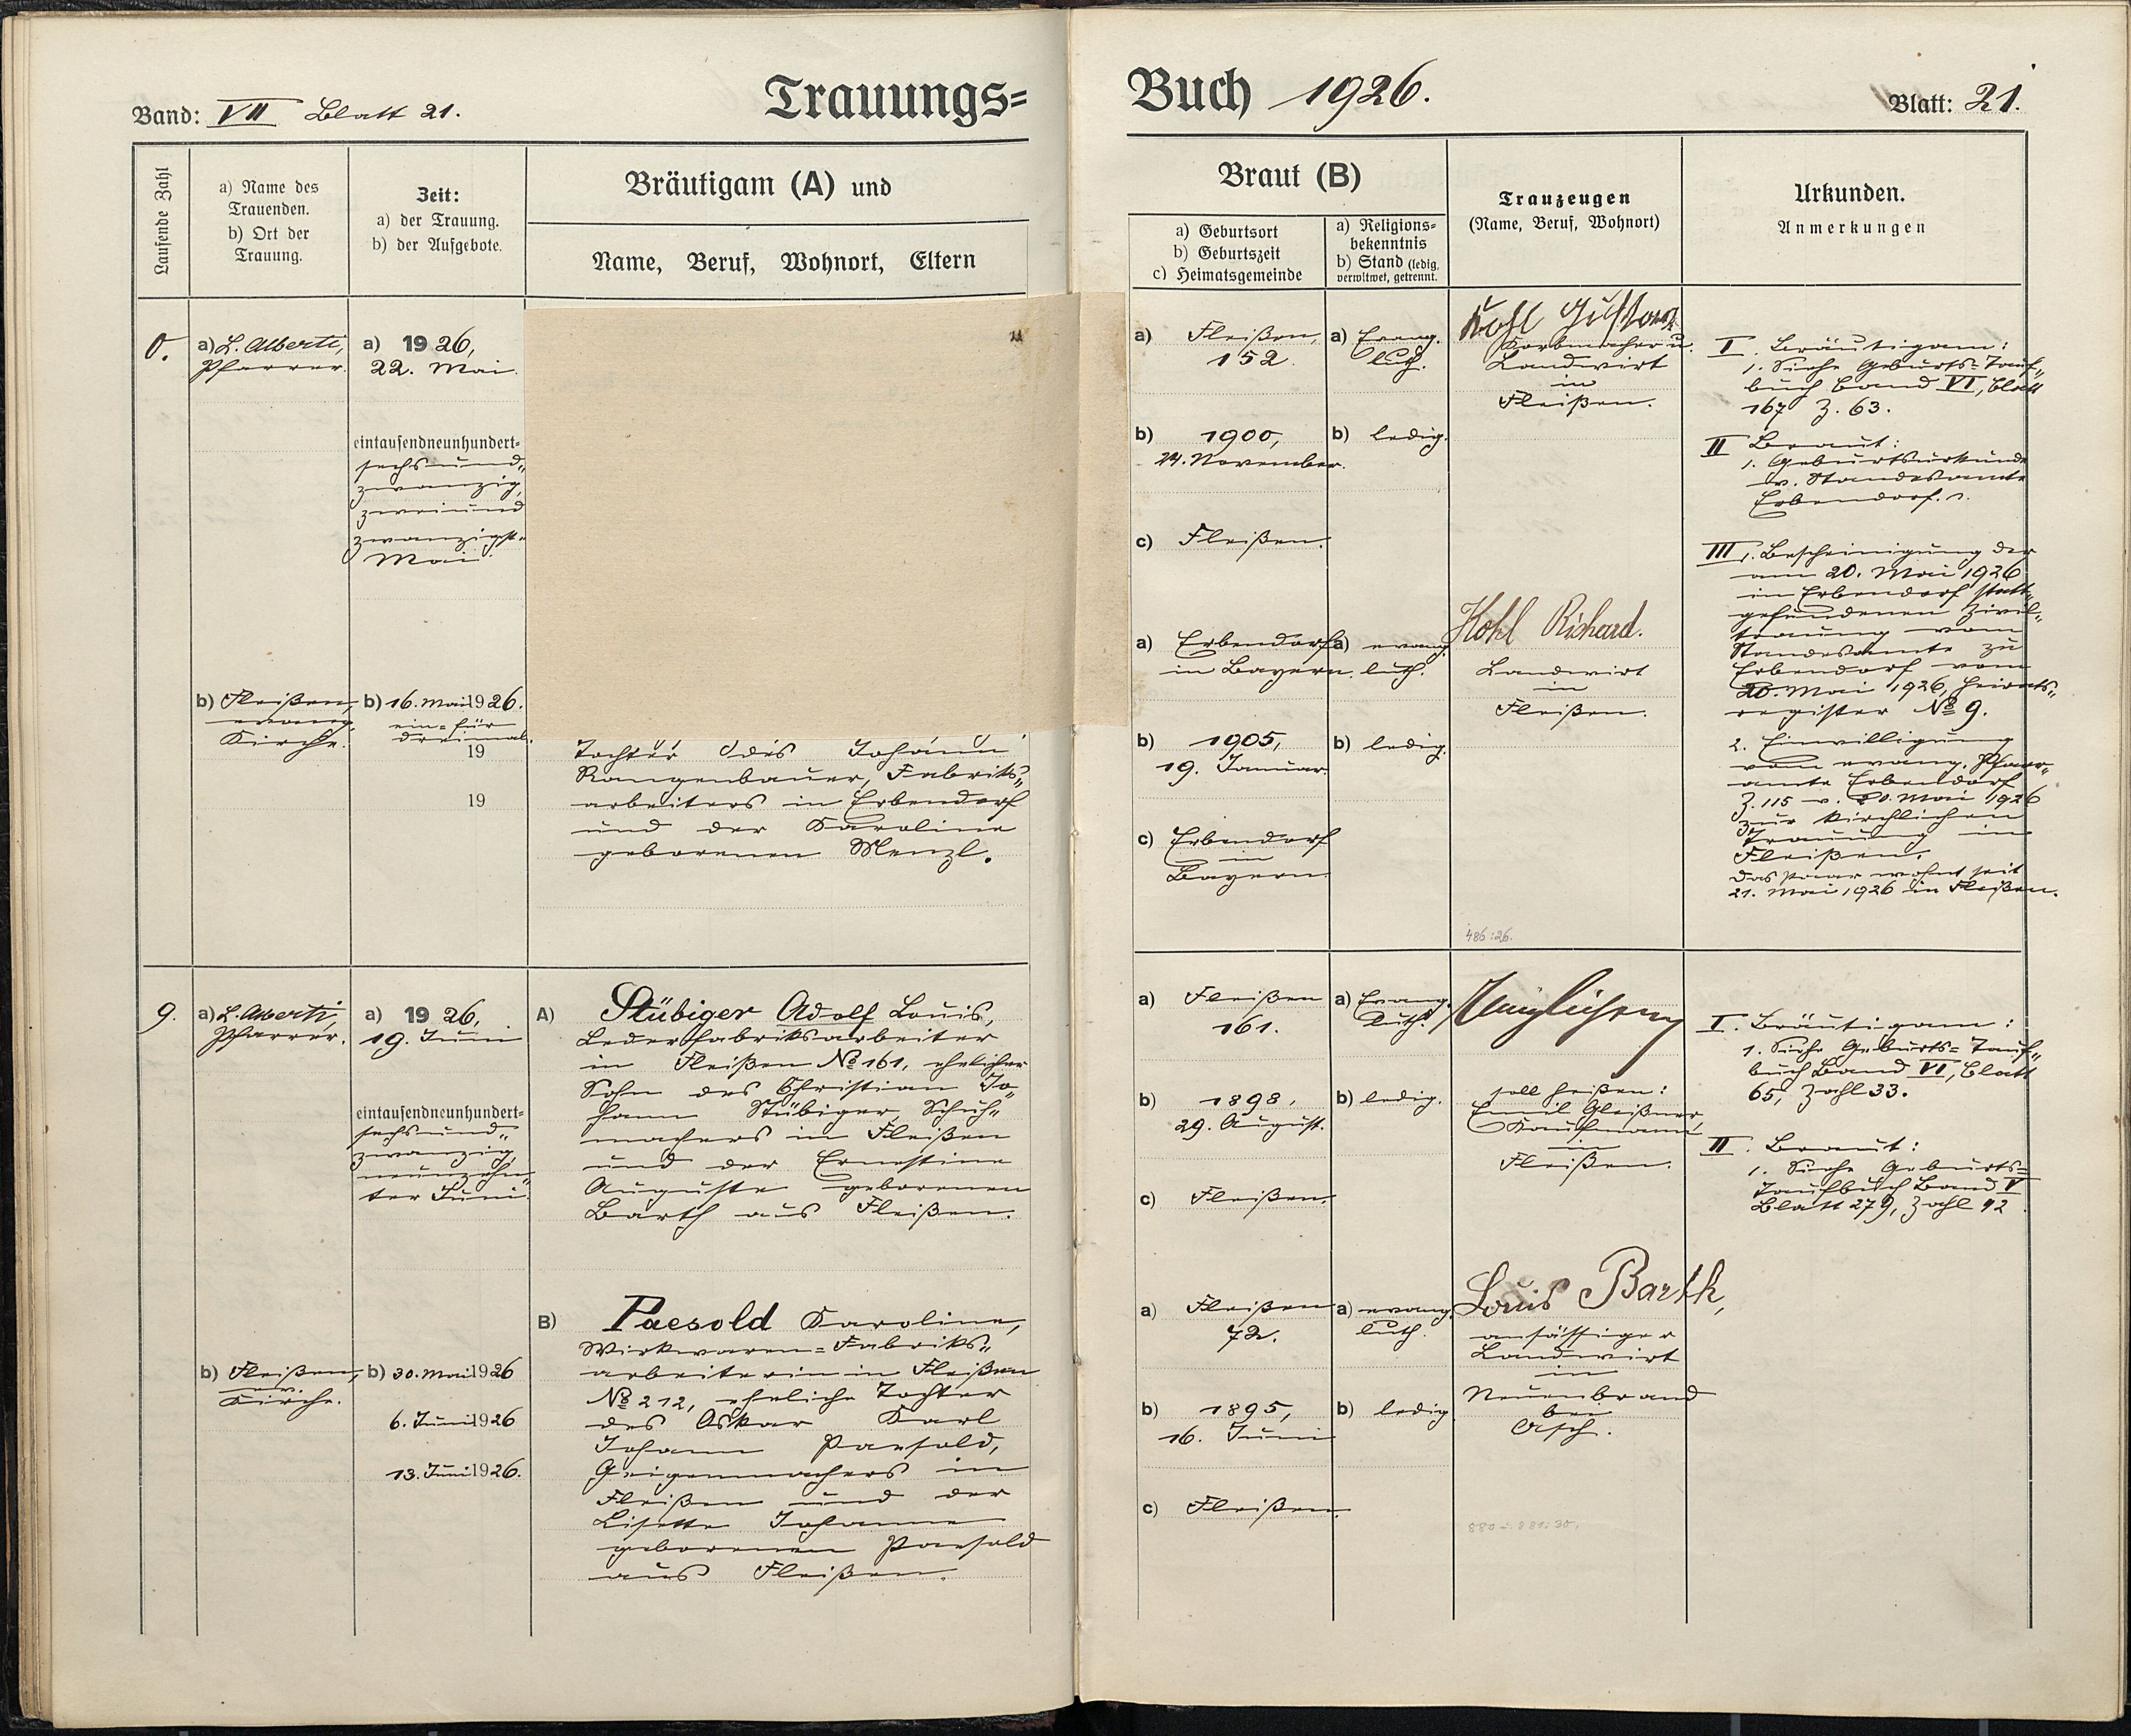 Band: VII Blatt 21.
Trauungs=
Buch 1926.
Blatt: 21.
Laufende Zahl
a) Name des
Trauenden.
b) Ort der
Trauung.
Zeit:
a) der Trauung.
b) der Aufgebote.
Bräutigam (A) und
Name, Beruf, Wohnort, Eltern
Braut (B)
a) Geburtsort
b) Geburtszeit
c) Heimatsgemeinde
a) Religions=
bekenntnis
b) Stand (ledig,
verwitwet, getrennt.
Trauzeugen
(Name, Beruf, Wohnort)
Urkunden.
Anmerkungen
a) L. Alberti,
Pfarrer.
b) Fleißen,
evang.
Kirche.
a) 1926,
22. Mai
eintausendneunhundert=
sechsund„
zwanzig,
zweiund
zwanzigst.
Mai.
b) 16. Mai 1926.
ein= für
dreimal.
19
19
Tochter des Johann
Rangenbauer, Fabriks„
arbeiters in Erbendorf
und der Karoline
geborenen Menzl.
a) Fleißen,
152.
b) 1900,
24. November.
c) Fleißen.
a) Erbendorf
in Bayern.
b) 1905,
19. Januar.
c) Erbendorf
in
Bayern
a) Evang.
luth.
b) ledig.
a) evang.
luth.
b) ledig.
Kohl Gustav
Korbmacher u.
Landwirt
in
Fleißen.
Kohl Richard.
Landwirt
in
Fleißen.
486:26.
I. Bräutigam:
1. Siehe Geburts= Tauf„
buch Band VI, Blatt
167 Z. 63.
II Braut:
1. Geburtsurkunde
v. Standesamte
Erbendorf.
III 1. Bescheinigung der
am 20. Mai 1926
in Erbendorf statt„
gefundenen Zivil„
trauung vom
Standesamte zu
Erbendorf vom
20. Mai 1926, Heirats„
register No 9.
2. Einwilligung
vom evang. Pfarr„
amte Erbendorf
Z. 115 v. 20. Mai 1926
zur kirchlichen
Trauung in
Fleißen.
Das Paar wohnt seit
21. Mai 1926 in Fleißen.
9.
a) L. Alberti,
Pfarrer.
b) Fleißen,
ev.
Kirche.
a) 1926,
19. Juni
eintausendneunhundert=
sechsund„
zwanzig,
neunzehn„
ter Juni.
b) 30. Mai 1926
6. Juni 1926
13. Juni 1926.
A) Stübiger Adolf Louis,
Lederfabriksarbeiter
in Fleißen No 161, ehelicher
Sohn des Christian Jo„
hann Stübiger, Schuh„
machers in Fleißen
und der Ernestine
Auguste geborenen
Barth aus Fleißen.
B) Paesold Karoline,
Wirkwaren=Fabriks„
arbeiterin in Fleißen
No 212, eheliche Tochter
des Oskar Karl
Johann Paesold,
Geigenmachers in
Fleißen und der
Lisette Johanne
geborenen Paesold
aus Fleißen.
a) Fleißen
161.
b) 1898,
29. August.
c) Fleißen.
a) Fleißen
72.
b) 1895,
16. Juni
c) Fleißen.
a) Evang.
luth.
b) ledig.
a) evang.
luth.
b) ledig
soll heißen:
Emil Gleißner,
Kaufmann
in
Fleißen.
Louis Barth,
ansässiger
Landwirt
in
Neuenbrand
bei
Asch.
I. Bräutigam:
1. Siehe Geburts= Tauf„
buch Band VI, Blatt
65, Zahl 33.
II. Braut:
1. Siehe Geburts=
Taufbuch Band V
Blatt 279, Zahl 42